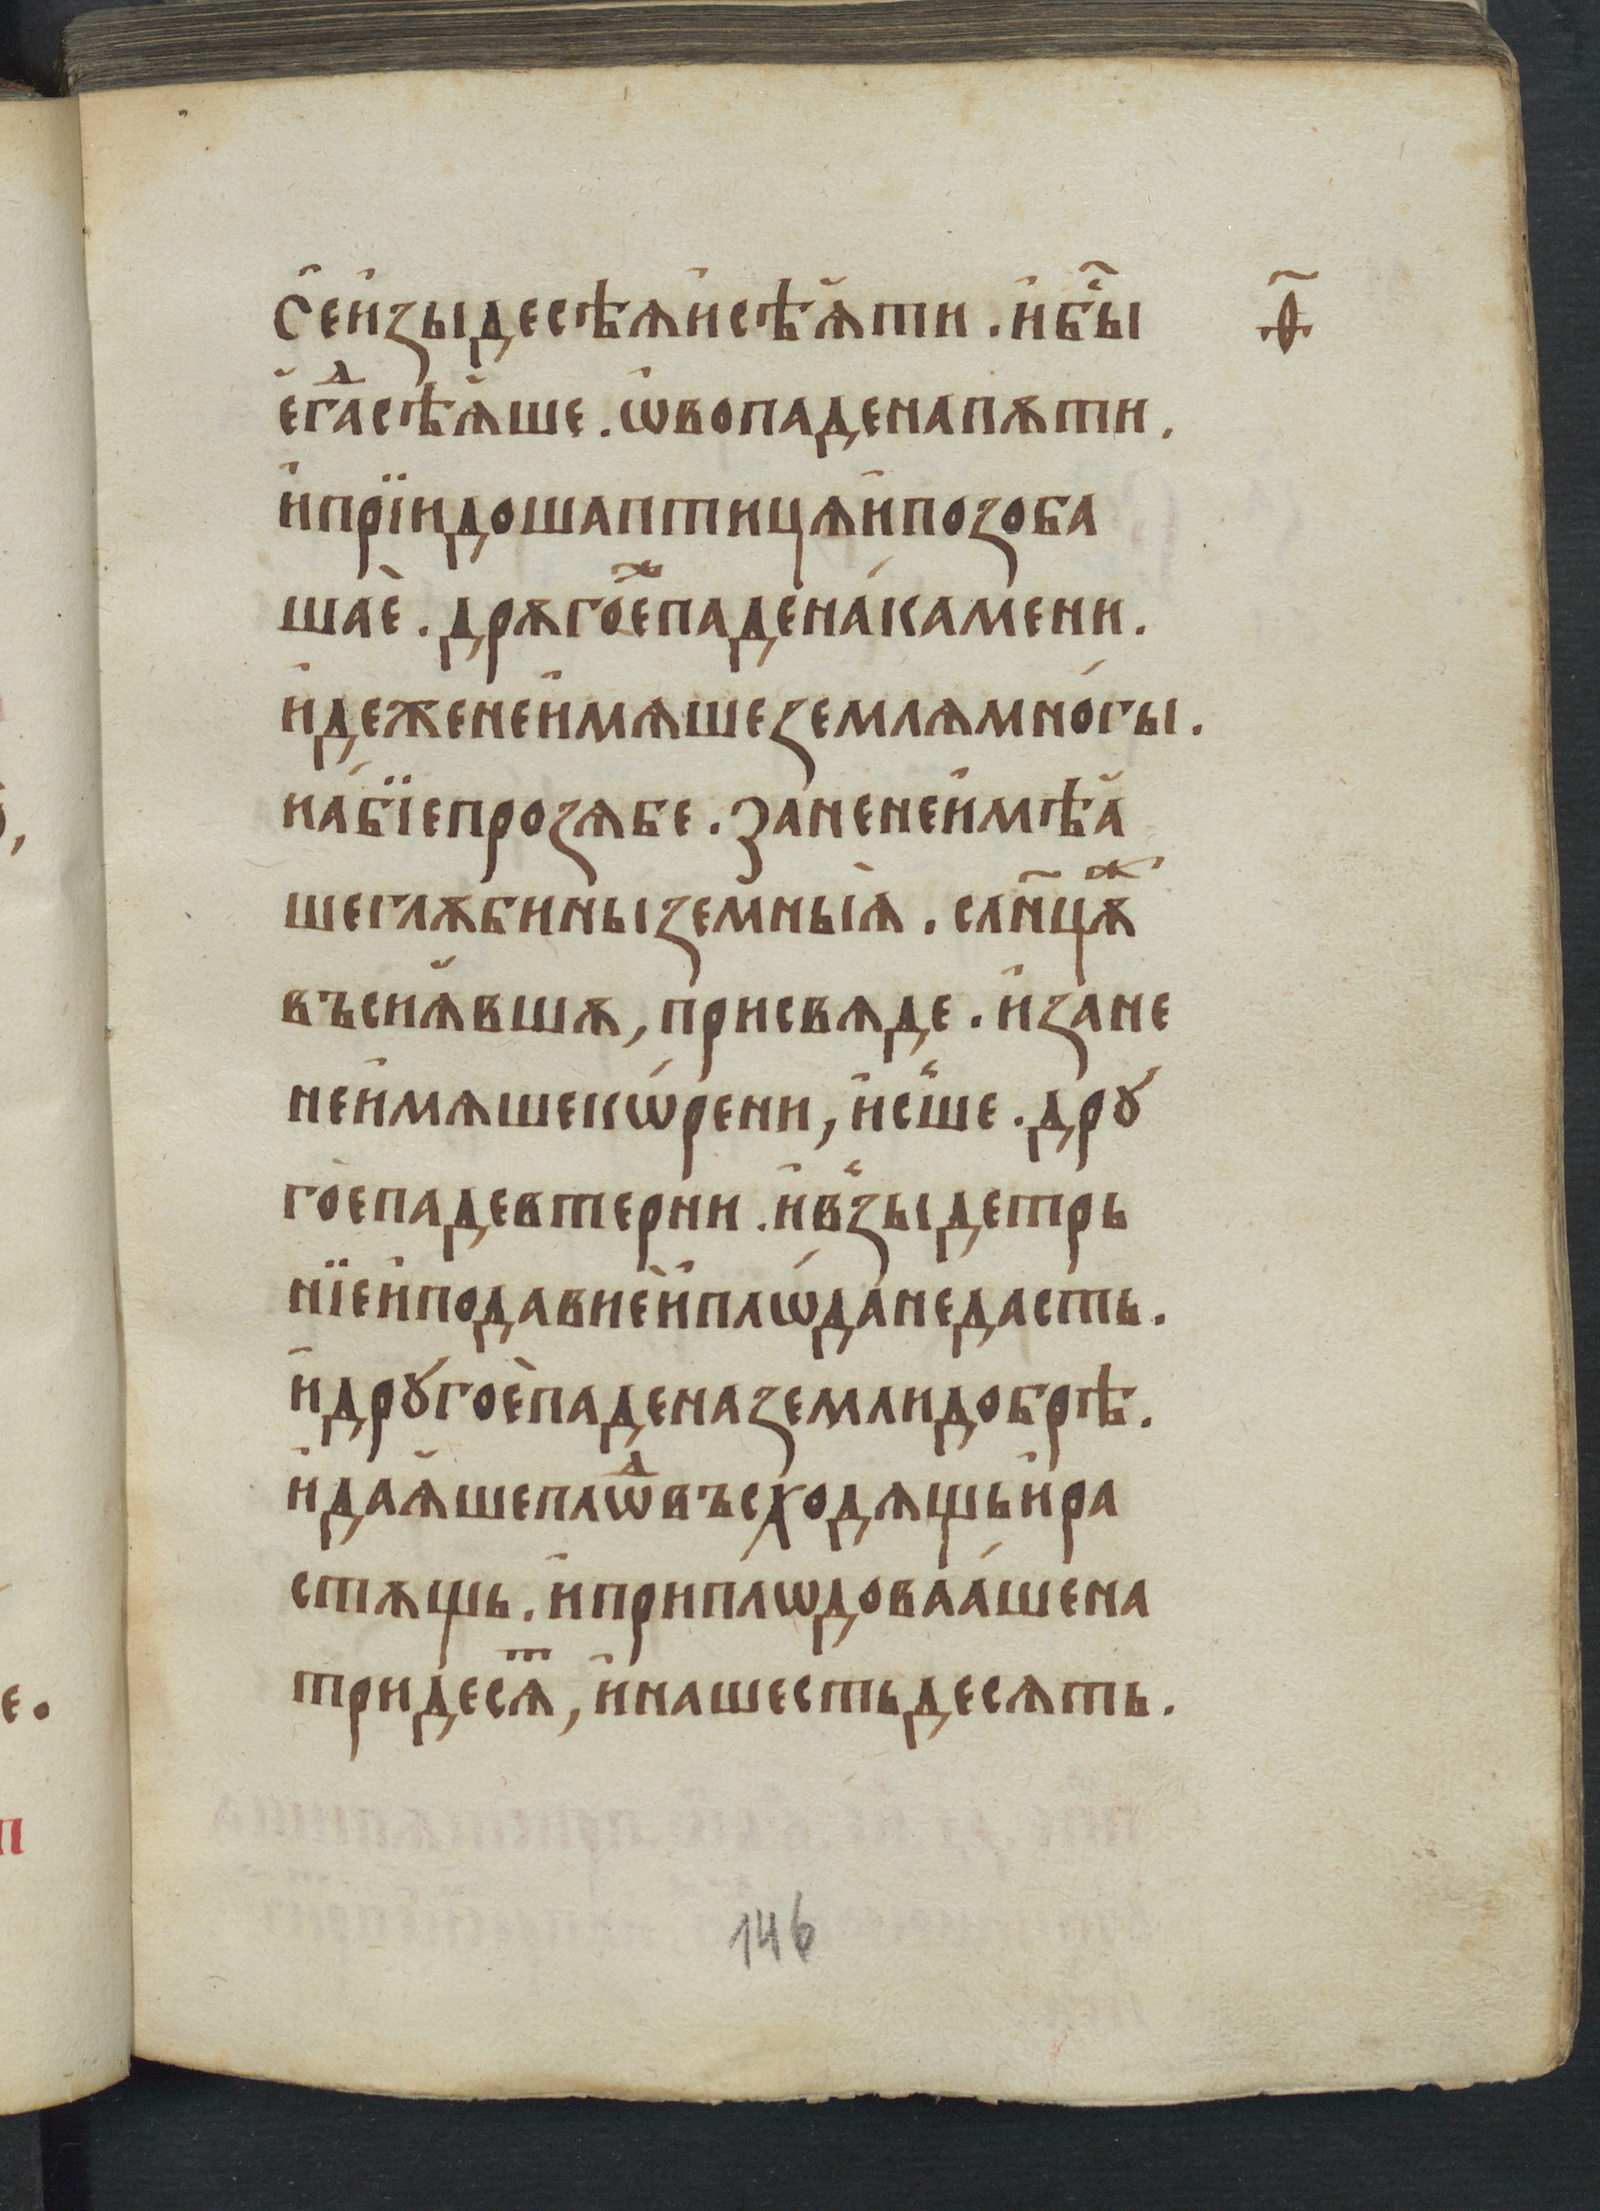 се́и҆зы́десѣѧи҆сѣѧ̆ти . и҆бы̑ⷭ ѳ҃
е҆гдⷣасѣѧ̆ше . ѡ҆вопаденапѫти .
и҆прїидошаптицѧи҆позоба
шаѐ . дрѫгоⷤепаденакамени .
и҆деженеи҆мѧшеземлѧмно́гы .
иа́бїепрозѧбе . заненеи҆мѣӑ
шеглѫбиныземныѧ̀ . слн҃цѫⷤ
въсиѧ̆вшѫ, присвѧде . и҆зане
неи҆мѧшекѡ́рени, и҆сⷯше . дрꙋ́
гоѐпадевтерни . и҆вⸯзыдетрь
нїеи҆подавиѐи҆плѡ́данедасть .
и҆дрꙋ́гоѐпаденаземлидобрѣ .
и҆даѧ̆шеплѡⷣвъсходѧщьи҆ра
стѧщь . и҆приплѡдоваа́шена
тридесѧⷮ, и҆нашестьдесѧть .
146